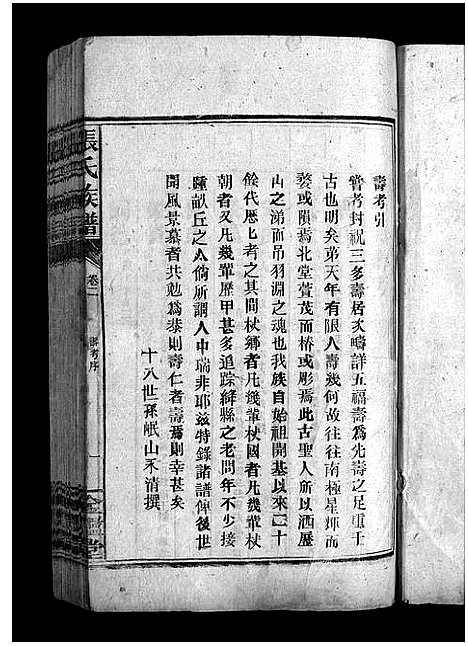 壽考引
嘗考封祝三多壽居次疇詳五福壽爲先壽之足重于
古也明矣第天年有限人壽幾何故往往南極星輝而
婺或隕焉北堂萱茂而椿或彫焉此古聖人所以洒歷
山之涕而吊羽淵之魂也我族自始祖開基以來二十
餘代歷上考之其間杖鄉者凡幾輩杖國者凡幾輩杖
朝者又凡幾輩歷甲甚多追踪絳縣之老問年不少接
踵畝丘之人倘所謂人中瑞非耶兹特錄諸譜俾後世
聞風景慕者共勉爲恭則壽仁者壽焉則幸甚矣
十八世孫岷山永清撰
張氏族譜
卷二
壽考序
一